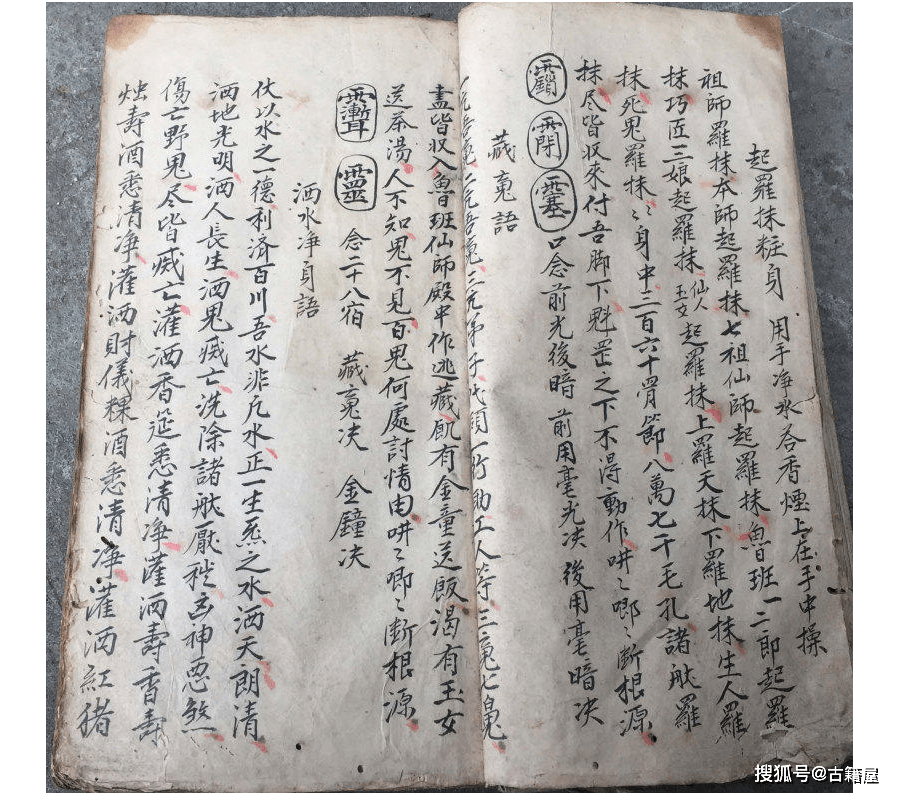 起羅抹粧身 用手净水合香煙上在手中操
祖師羅抹本師起羅抹七祖仙師起羅抹魯班一二郎起羅
抹巧匠三娘起羅抹仙人玉女起羅抹上羅天抹下羅地抹生人羅
抹死鬼羅抹〻身中三百六十骨節八萬七千毛孔諸般羅
抹尽皆収來付吾脚下魁罡之下不得動作哄〻唧〻断根源
口念前光後暗 前用毫光决後用毫暗决
藏䰟語
弟子 工人等三䰟七魄
盡皆収入魯班仙師殿中作逃藏飢有金童送飯渴有玉女
送茶湯人不知鬼不見百鬼何處討情由哄〻唧〻断根源
念二十八宿 藏䰟决 金鐘决
洒水净身語
伏以水之一德利済百川吾水非凡水正一生炁之水洒天朗清
洒地光明洒人長生洒鬼滅亡洗除諸般厭穢玄神惡煞
傷亡野鬼尽皆滅亡灌洒香筵悉清净灌洒壽香壽
烛壽酒悉清净灌洒財儀粿酒悉清净灌洒紅猪
搜狐号@古籍屋